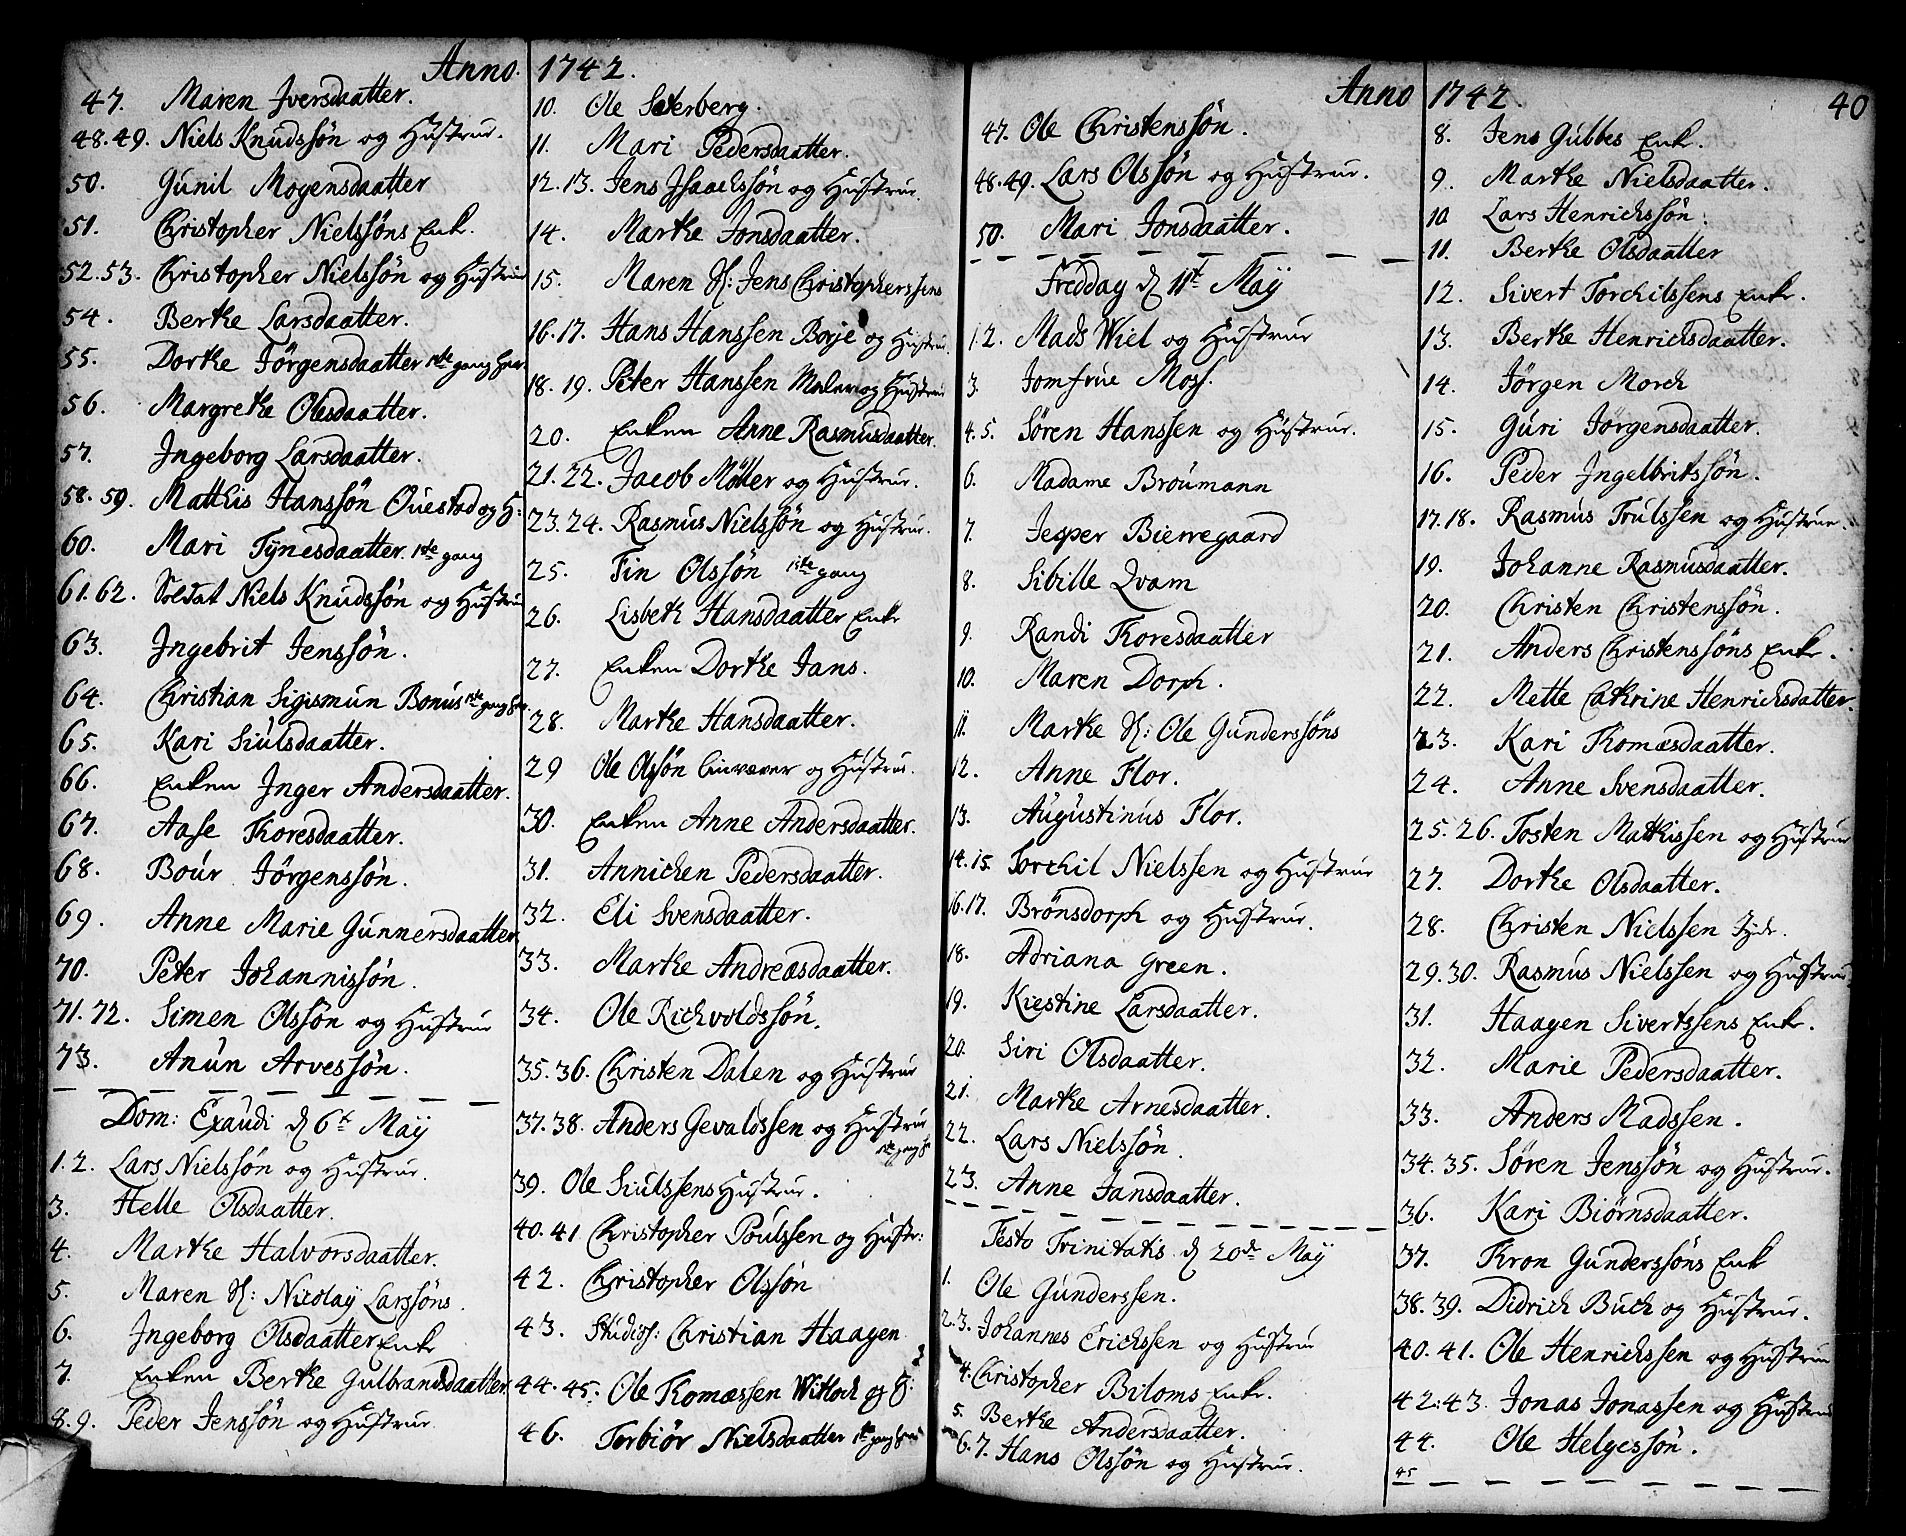 Anno 1742.
47. Maren Iversdaatter.
48. 49. Niels Knudssön og Hustrue.
50. Gunil Mogensdaatter
51. Christopher Nielssöns Enk.
52. 53. Christopher Nielssön og Hustrue
54. Berthe Larsdaatter.
55. Dorthe Jörgensdaatter 1ste gang her
56. Margrethe Olesdaatter.
57. Ingeborg Larsdaatter.
58. 59. Mathis Hanssön Ouestad og H:
60. Mari Tynesdaatter. 1ste gang
61. 62. Soldat Niels Knudssön og Hustrue
63. Ingebrit Jenssön.
64. Christian Sigismun Bonus 1ste gang her
65. Kari Siulsdaatter.
66. Enken Inger Andersdaatter.
67. Aase Thoresdaatter.
68. Bour Jörgenssön.
69. Anne Marie Gunnersdaatter
70. Peter Johannissön.
71. 72. Simen Olssön og Hustrue
73. Anun Arvessön.
Dom: Exaudi d 6te Maÿ
1. 2. Lars Nielssön og Hustrue.
3. Helle Olsdaatter.
4. Marthe Halvorsdaatter.
5. Maren H: Nicolaÿ Larssöns.
6. Ingeborg Olsdaatter Enk
7. Enken Berthe Gulbrandsdaatter
8. 9. Peder Jenssön og Hustrue.
10. Ole Sæterberg.
11. Mari Pedersdaatter.
12. 13. Jens Isaachssön og Hustrue.
14. Marthe Jonsdaatter.
15. Maren H: Jens Christopherssens
16. 17. Hans Hanssen Borje og Hustrue.
18. 19. Peter Hanssen Maler og Hustrue
20. Enken Anne Rasmusdaatter.
21. 22. Jacob Möller og Hustrue.
23. 24. Rasmus Nielssön og Hustrue.
25. Fin Olssön 1ste gang
26. Lisbeth Hansdaatter Enke
27. Enken Dorthe Jans.
28. Marthe Hansdaatter.
29 Ole Olssön Linvæver og Hustrue.
30. Enken Anne Andersdaatter.
31. Annichen Pedersdaatter.
32. Eli Svensdaatter.
33. Marthe Andreasdaatter.
34. Ole Richvoldssön.
35. 36. Christen Dalen og Hustrue
37. 38. Anders Gevaldssen og Hustrue
1ste gang h
39. Ole Siulssens Hustrue.
40. 41 Christopher Poulssen og Hustr:
42. Christopher Olssön
43. Studios: Christian Haagen
44. 45. Ole Thomæssen Witloch og H.
46. Torbiör Nielsdaatter 1ste gang her
Anno 1742. 40
47. Ole Christenssön.
48. 49. Lars Olssön og Hustrue.
50. Mari Jonsdaatter.
Fredday d 11te Maÿ
1. 2. Mads Wiel og Hustrue
3. Jomfrue Moss.
4. 5. Sören Hanssen og Hustrue.
6. Madame Broumann
7. Jesper Bierregaard
8. Sibille Qvam
9. Randi Thoresdaatter
10. Maren Dorph.
11. Marthe H: Ole Gunderssöns
12. Anne Flor.
13. Augustinus Flor.
14. 15. Torchil Nielssen og Hustrue
16. 17. Brönsdorph og Hustrue.
18. Adriana Green.
19. Kiestine Larsdaatter.
20. Siri Olsdaatter.
21. Marthe Arnesdaatter.
22. Lars Nielssön.
23. Anne Jansdaatter.
Festo Trinitatis d 20de Maÿ
1. Ole Gunderssen.
2. 3. Johannes Erichssen og Hustrue
4. Christopher Biloms Enke.
5. Berthe Andersdaatter.
6. 7. Hans Olssön og Hustrue.
8. Jens Gubbes Enk.
9. Marthe Nielsdaatter.
10 Lars Henrichssön.
11. Berthe Olsdaatter
12. Sivert Torchilssens Enke.
13. Berthe Henrichsdaatter.
14. Jörgen Morch
15. Guri Jörgensdaatter.
16. Peder Ingelbritssön.
17. 18. Rasmus Trulssen og Hustrue.
19. Johanne Rasmusdaatter.
20. Christen Christenssön.
21. Anders Christenssöns Enke.
22. Mette Cathrine Henrichsdatter.
23. Kari Thomæsdaatter.
24. Anne Svensdaatter.
25. 26. Tosten Mathissen og Hustrue
27. Dorthe Olsdaatter.
28. Christen Nielssen Jyde.
29. 30. Rasmus Nielssen og Hustrue.
31. Haagen Sivertssens Enke.
32. Marie Pedersdaatter.
33. Anders Madssen.
34. 35. Sören Jenssön og Hustrue.
36. Kari Biörnsdaatter.
37. Thron Gunderssöns Enk
38. 39. Didrich Buch og Hustrue.
40. 41. Ole Henrichssen og Hustrue
42. 43. Jonas Jonassen og Hustrue
44. Ole Helgessön.
45